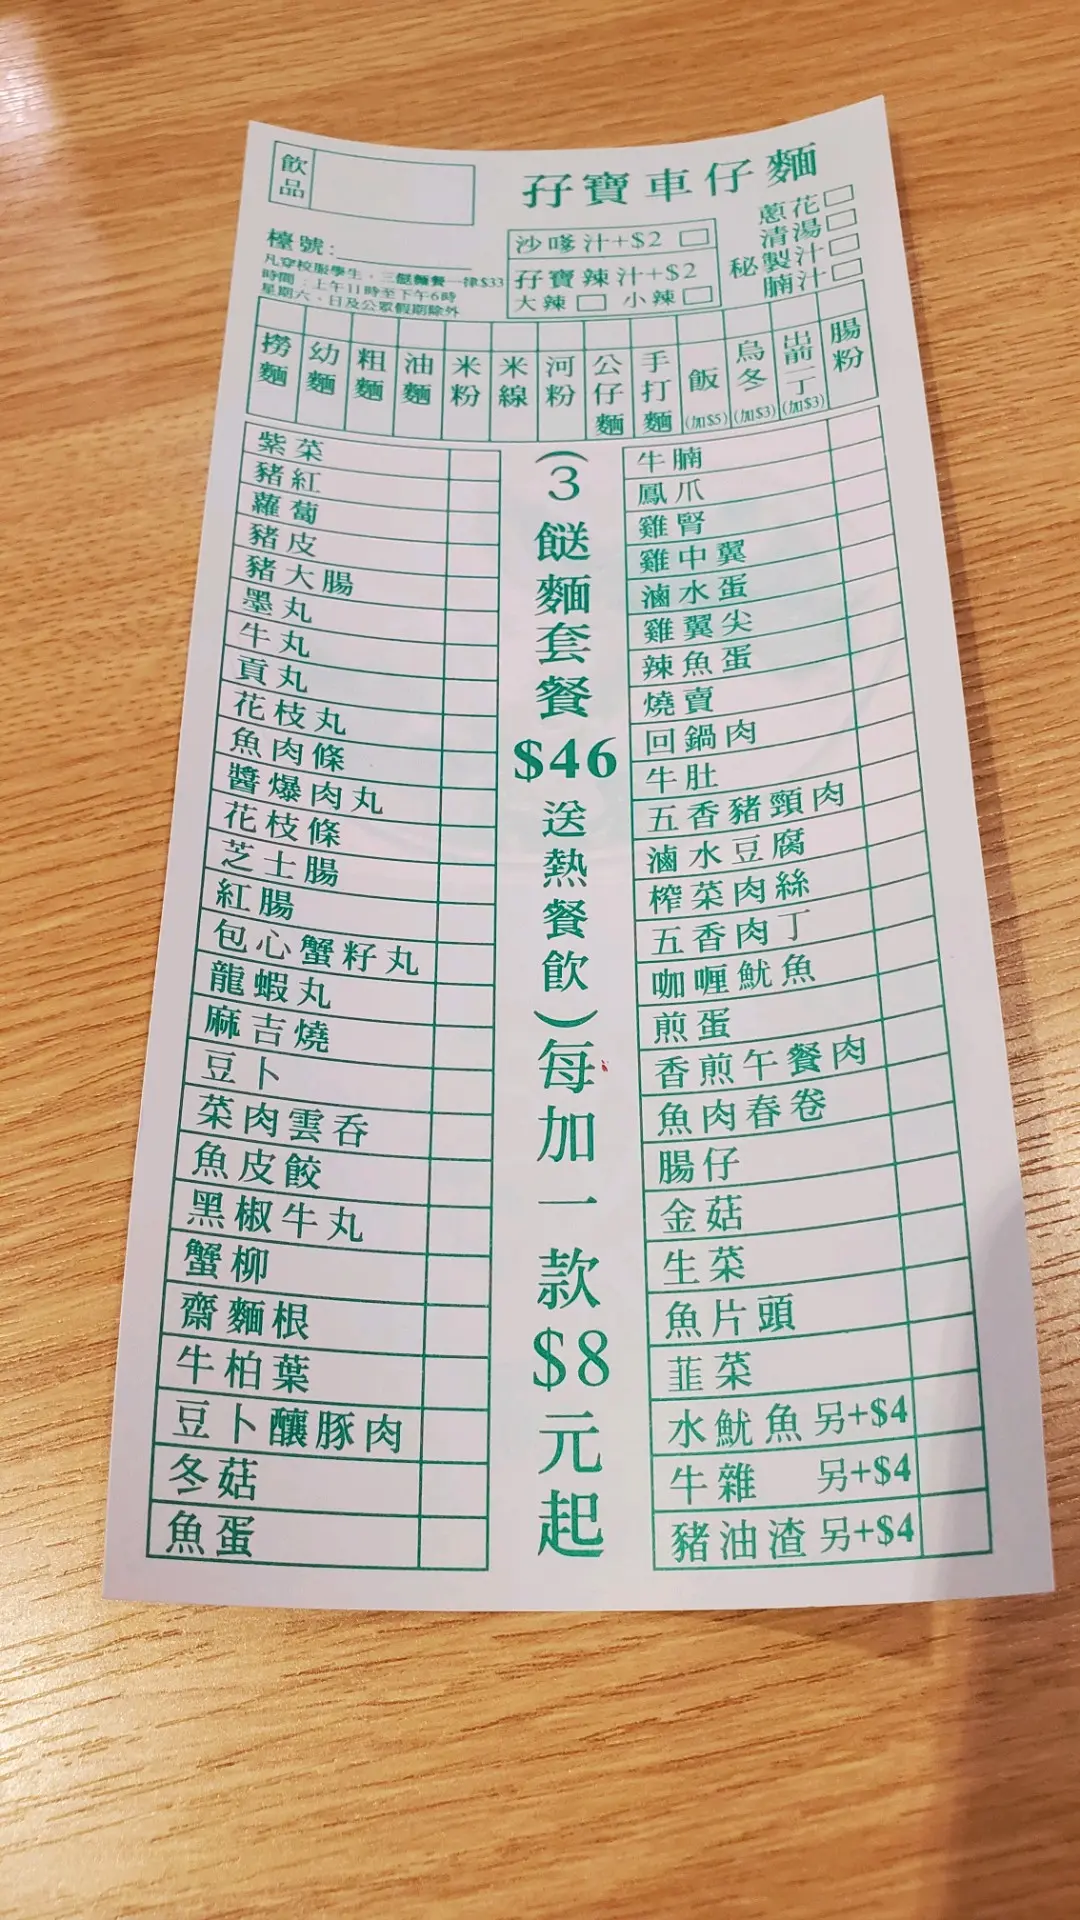 飲品
孖寶車仔麵
蔥花
清湯
秘製汁
腩汁
沙嗲汁+$2
孖寶辣汁+$2
大辣 小辣
檯號:
凡穿校服學生，三餸麵餐一律$33
時間：上午11時至下午6時
星期六、日及公眾假期除外
撈麵
幼麵
粗麵
油麵
米粉
米線
河粉
公仔麵
手打麵
飯(加$5)
烏冬(加$3)
出前一丁(加$3)
腸粉
紫菜
豬紅
蘿蔔
豬皮
豬大腸
墨丸
牛丸
貢丸
花枝丸
魚肉條
醬爆肉丸
花枝條
芝士腸
紅腸
包心蟹籽丸
龍蝦丸
麻吉燒
豆卜
菜肉雲吞
魚皮餃
黑椒牛丸
蟹柳
齋麵根
牛柏葉
豆卜釀豚肉
冬菇
魚蛋
(3餸麵套餐$46送熱餐飲)每加一款$8元起
牛腩
鳳爪
雞腎
雞中翼
滷水蛋
雞翼尖
辣魚蛋
燒賣
回鍋肉
牛肚
五香豬頸肉
滷水豆腐
榨菜肉絲
五香肉丁
咖喱魷魚
煎蛋
香煎午餐肉
魚肉春卷
腸仔
金菇
生菜
魚片頭
韮菜
水魷魚另+$4
牛雜 另+$4
豬油渣另+$4